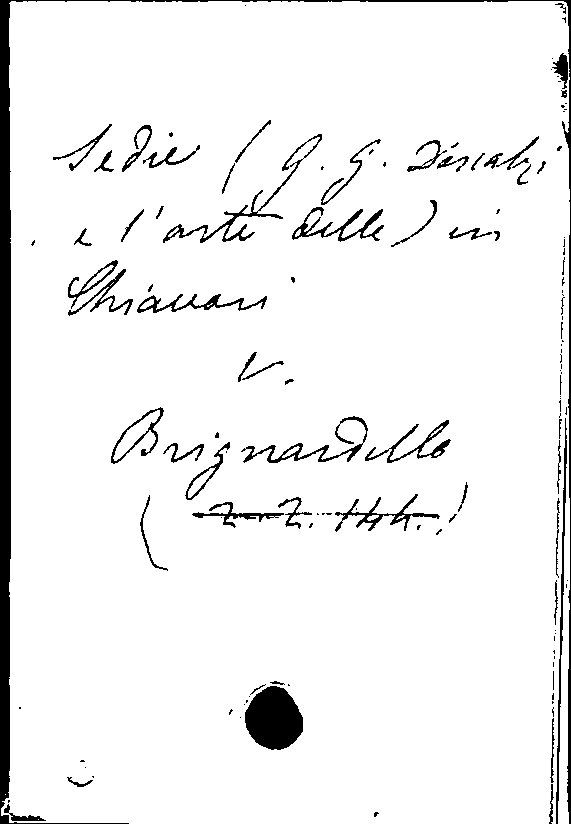 Sedie (G. G. Descalzi
e l'arte delle) in
Chiavari
V.
Brignardello
(Z. Z. 144.)